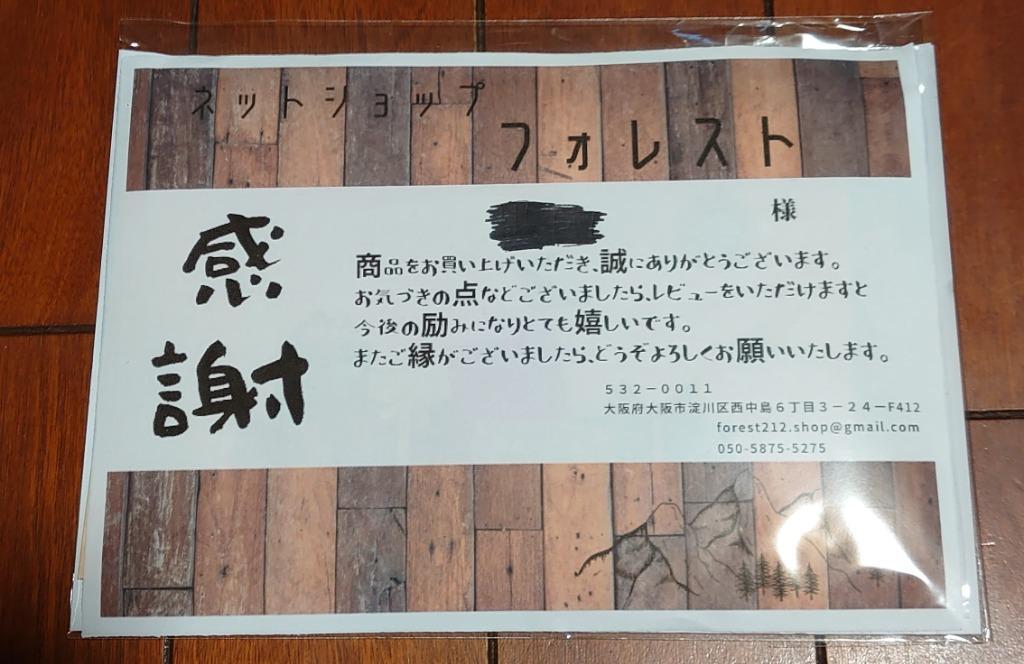 ネットショップ
フォレスト
感謝
様
商品をお買い上げいただき、誠にありがとうございます。
お気づきの点などございましたら、レビューをいただけますと
今後の励みになりとても嬉しいです。
またご縁がございましたら、どうぞよろしくお願いいたします。
532－0011
大阪府大阪市淀川区西中島６丁目３－２４ーF412
forest212.shop@gmail.com
050-5875-5275